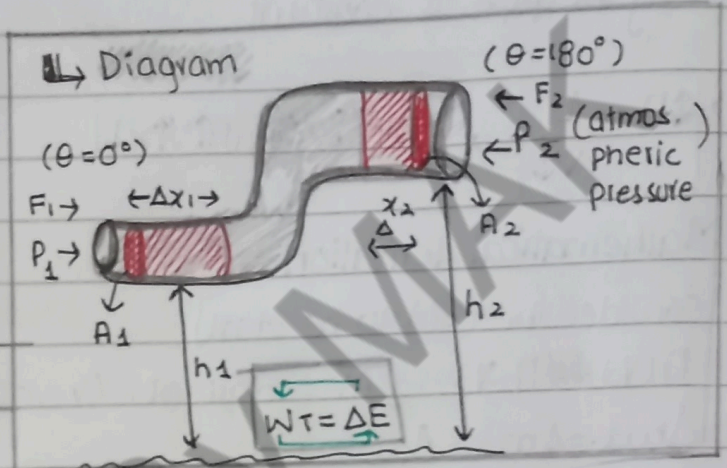 ↳ Diagram
(θ=180°)
← F2
← P2 (atmos.
pheric)
pressure
(θ=0°)
F1→
←Δx1→
P1→
x2
Δ
A2
A1
h1
h2
WT = ΔE
MAK